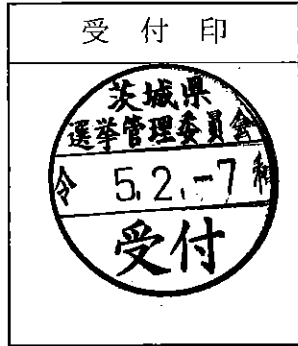 受付印
茨城県
選挙管理委員会
令 5.2.-7 和
受付